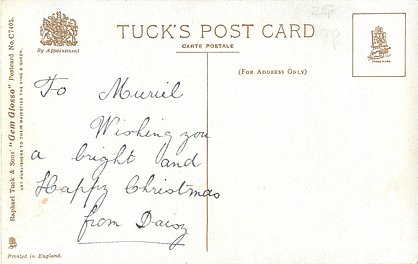 TUCK'S POST CARD
CARTE POSTALE
By Appointment
(FOR ADDRESS ONLY)
Raphael Tuck & Sons' "Gem Glosso" Postcard No. C7405.
ART PUBLISHERS TO THEIR MAJESTIES THE KING & QUEEN.
To Muriel
Wishing you
a bright and
Happy Christmas
from Daisy
Printed in England.
TRADE MARK